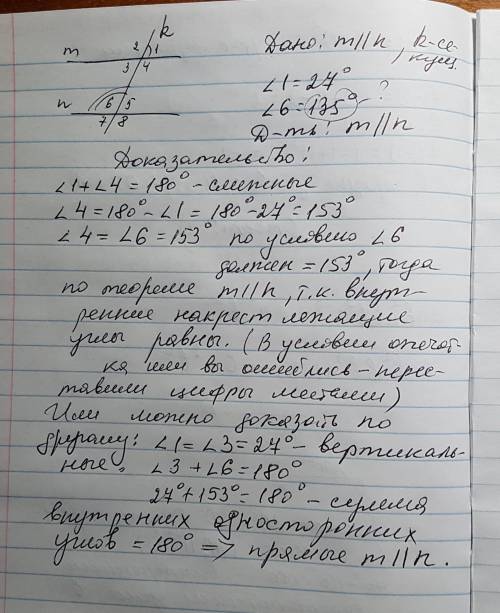 k
m 2 1
3 4
n 6 5
7 8
Дано: m||n, k-се-
кущ.
∠1=27°
∠6=135° ?
Д-ть: m||n
Доказательство:
∠1+∠4=180° - смежные
∠4=180°-∠1=180°-27°=153°
∠4=∠6=153° по условию ∠6
должен =153°, тогда
по теореме m||n, т.к. внут-
ренние накрест лежащие
углы равны. (В условии опечат-
ка или вы ошиблись - перес-
тавили цифры местами)
Или можно доказать по
другому: ∠1=∠3=27° - вертикаль-
ные. ∠3+∠6=180°
27°+153°=180° - сумма
внутренних односторонних
углов =180° => прямые m||n.